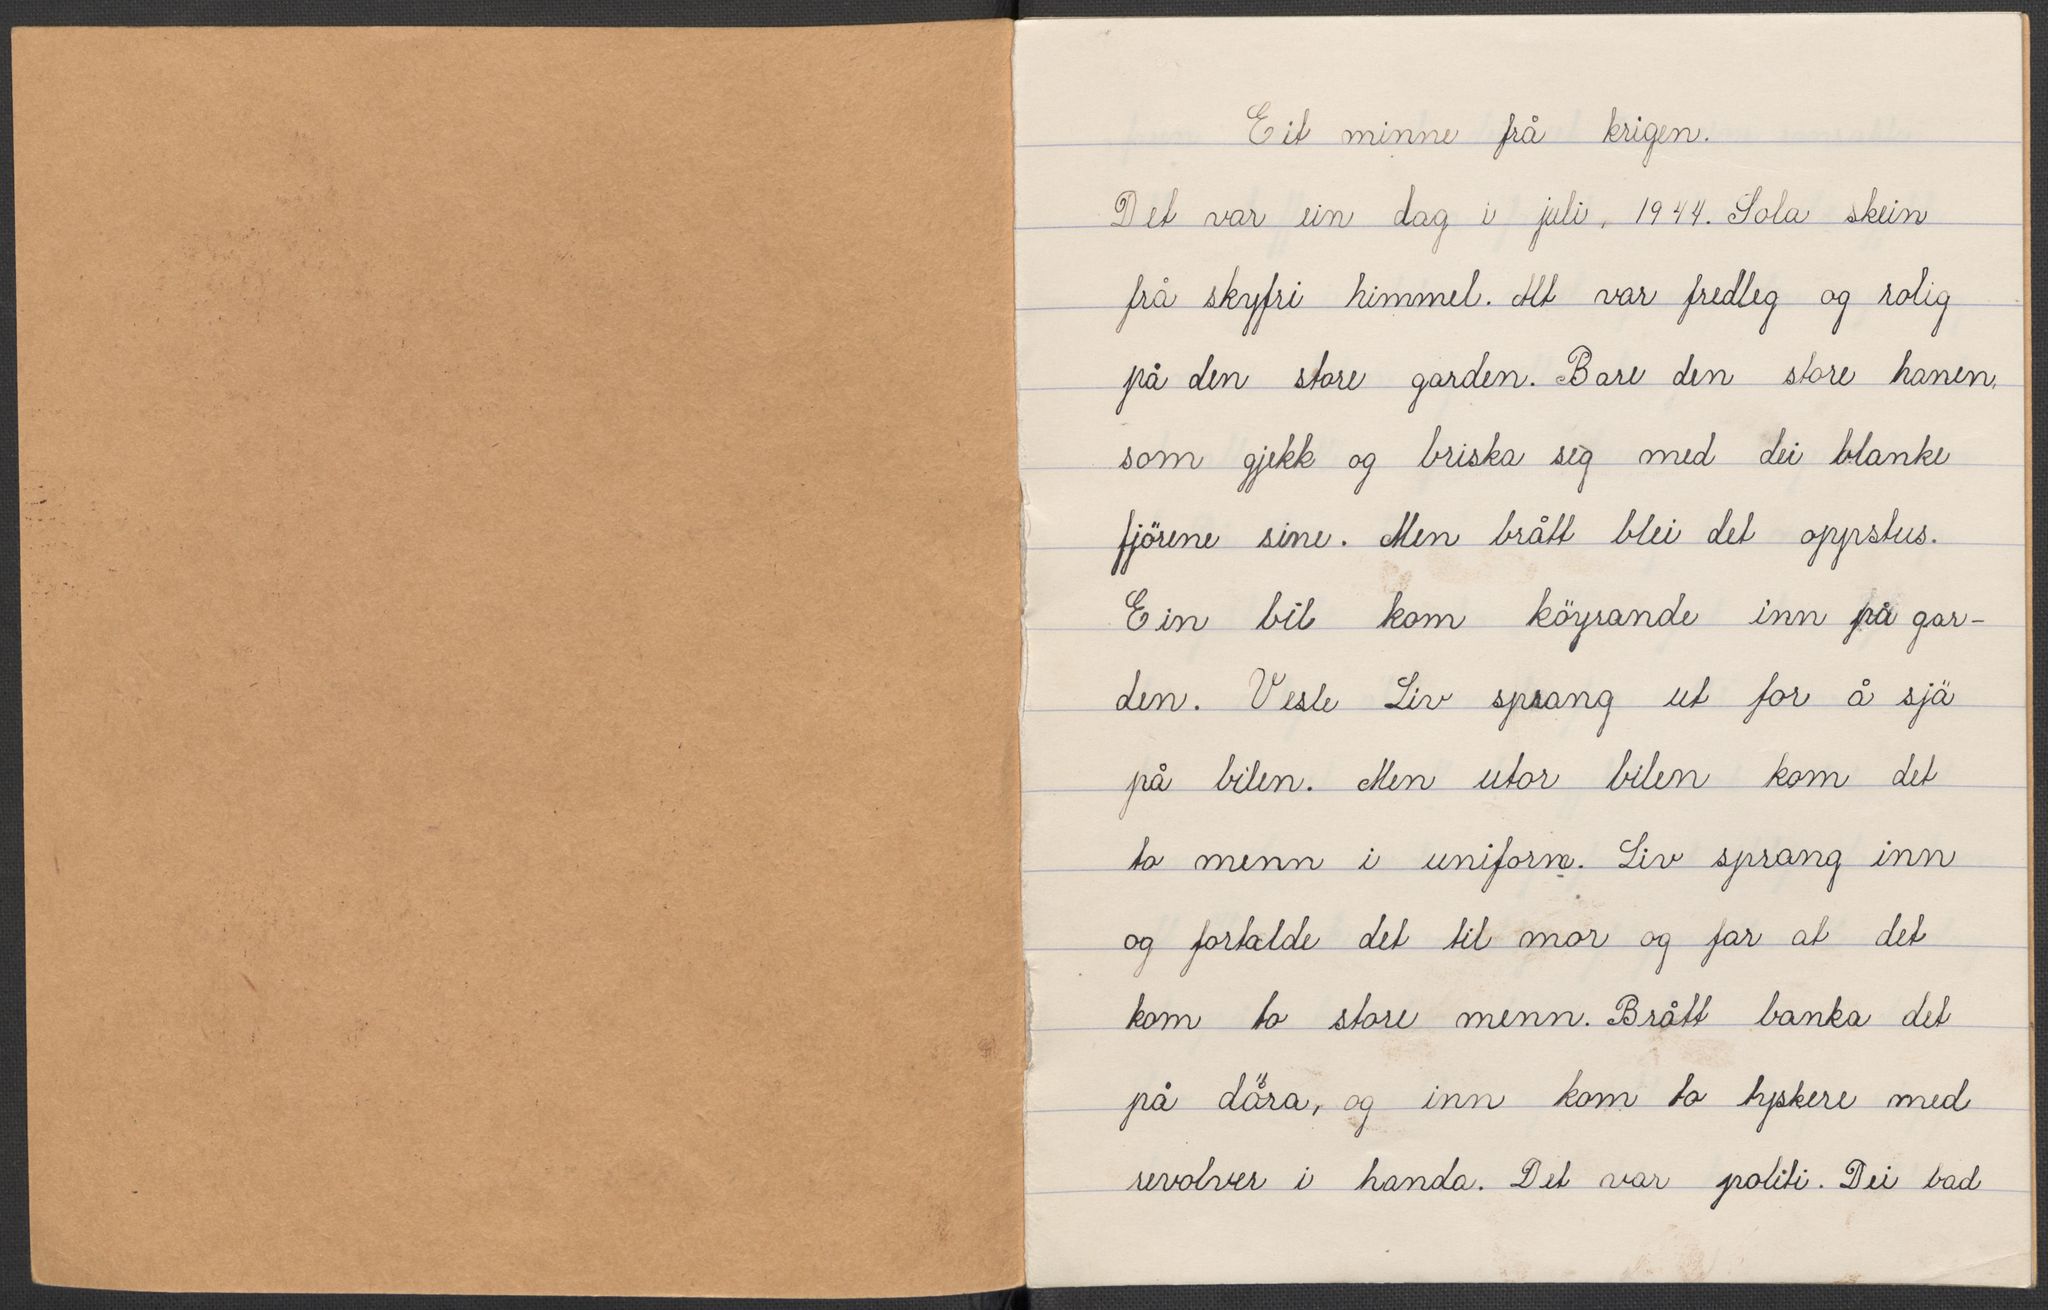 Eit minne frå krigen.
Det var ein dag i juli, 1944. Sola skein
frå skyfri himmel. Alt var fredleg og rolig
på den store garden. Bare den store hanen,
som gjekk og briska seg med dei blanke
fjörene sine. Men brått blei det oppstus.
Ein bil kom köyrande inn på gar-
den. Vesle Liv sprang ut for å sjä
på bilen. Men utor bilen kom det
to menn i uniform. Liv sprang inn
og fortalde det til mor og far at det
kom to store menn. Brått banka det
på döra, og inn kom to tyskere med
revolver i handa. Det var politi. Dei bad